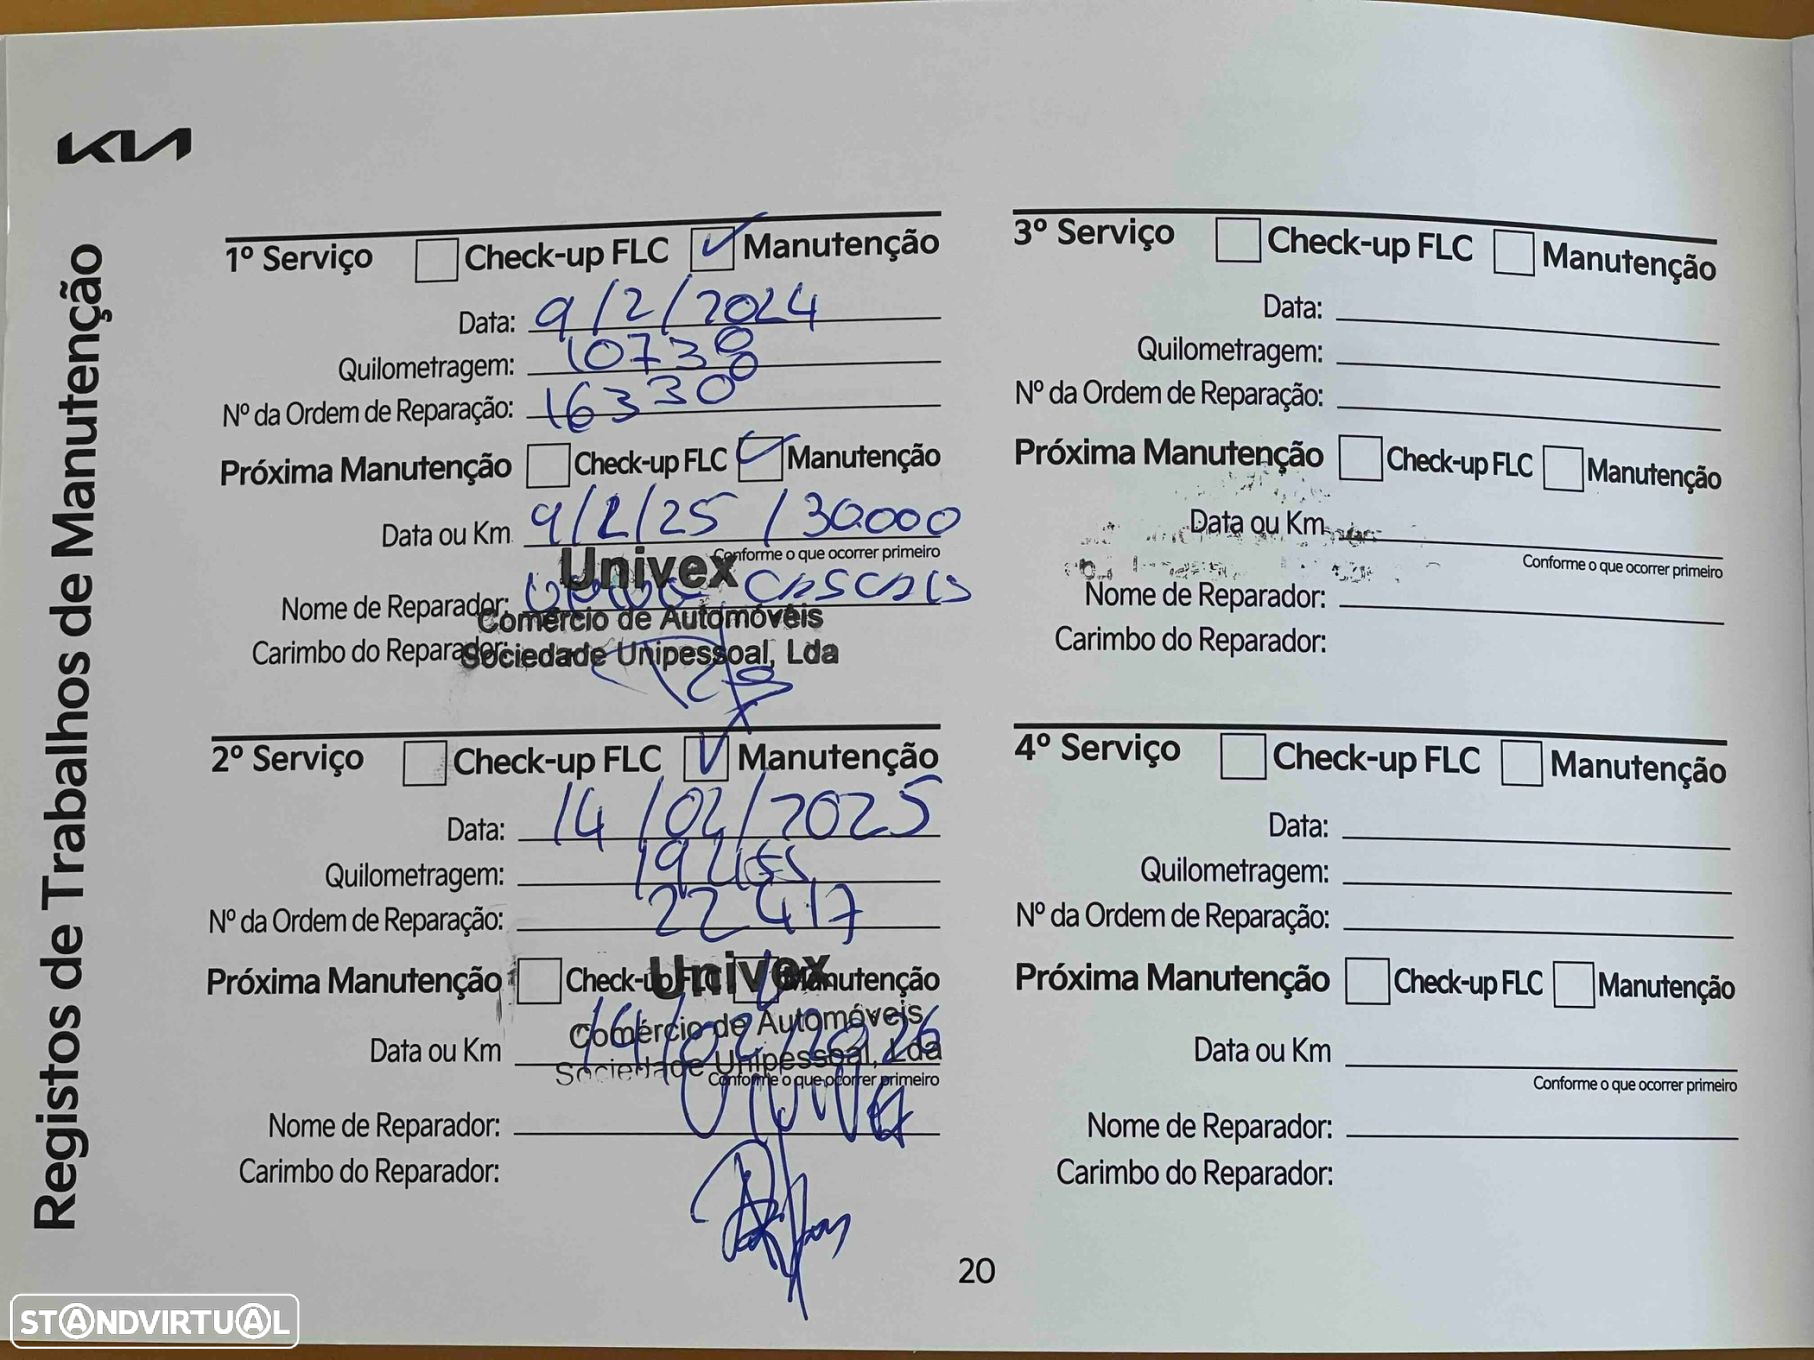 KIA
Registos de Trabalhos de Manutenção
1º Serviço Check-up FLC Manutenção
Data: 9/2/2024
Quilometragem: 10738
Nº da Ordem de Reparação: 16330
Próxima Manutenção Check-up FLC Manutenção
Data ou Km 9/2/25 / 30000
Conforme o que ocorrer primeiro
Univex
Nome de Reparador: CASCAIS
Comércio de Automóveis
Carimbo do Reparador:
Sociedade Unipessoal, Lda
2º Serviço Check-up FLC Manutenção
Data: 14/02/2025
Quilometragem:
Nº da Ordem de Reparação: 22417
Próxima Manutenção Check-up FLC Manutenção
Univex
Comércio de Automóveis
Data ou Km 14/02/2026
Sociedade Unipessoal, Lda
Conforme o que ocorrer primeiro
Nome de Reparador:
Carimbo do Reparador:
3º Serviço Check-up FLC Manutenção
Data:
Quilometragem:
Nº da Ordem de Reparação:
Próxima Manutenção Check-up FLC Manutenção
Data ou Km
Conforme o que ocorrer primeiro
Nome de Reparador:
Carimbo do Reparador:
4º Serviço Check-up FLC Manutenção
Data:
Quilometragem:
Nº da Ordem de Reparação:
Próxima Manutenção Check-up FLC Manutenção
Data ou Km
Conforme o que ocorrer primeiro
Nome de Reparador:
Carimbo do Reparador:
20
STANDVIRTUAL